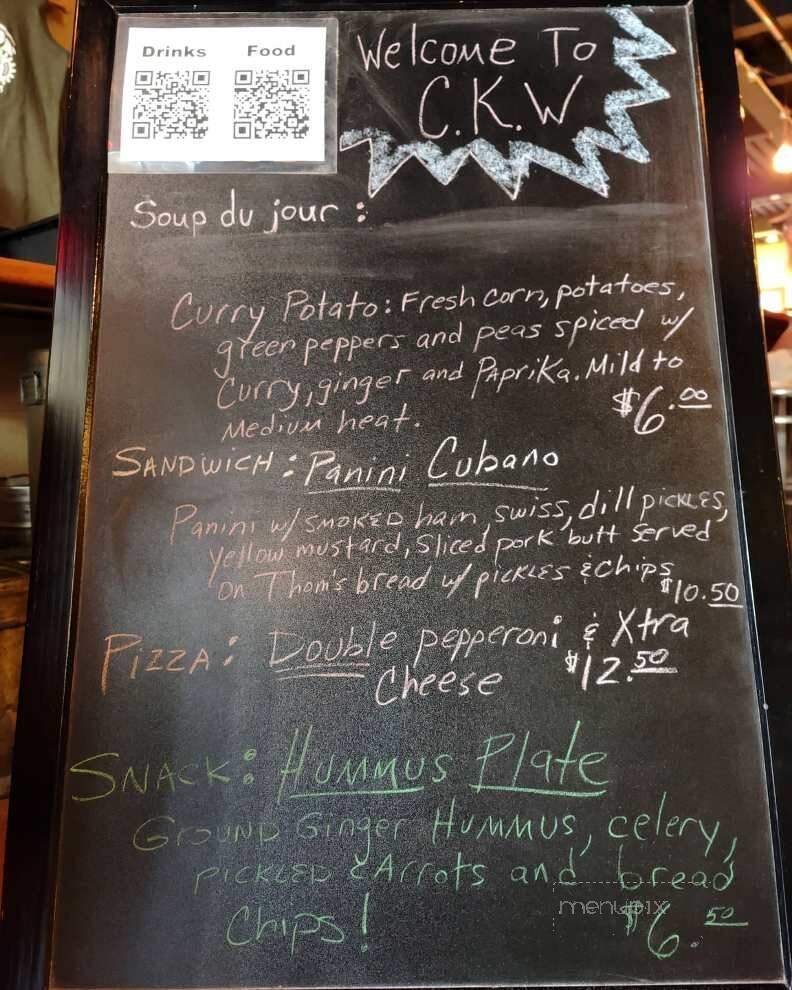 Drinks Food
Welcome To
C.K.W
Soup du jour :
Curry Potato: Fresh corn, potatoes,
green peppers and peas spiced w/
Curry, ginger and Paprika. Mild to
Medium heat. $6.00
SANDWICH : Panini Cubano
Panini w/ SMOKED ham, swiss, dill pickles,
yellow mustard, Sliced pork butt served
on Thom's bread w/ pickles & chips
$10.50
PIZZA : Double pepperoni & Xtra
Cheese $12.50
SNACK : Hummus Plate
GROUND Ginger HUMMUS, celery,
PICKLED CArrots and bread
Chips! $6.50
menupix